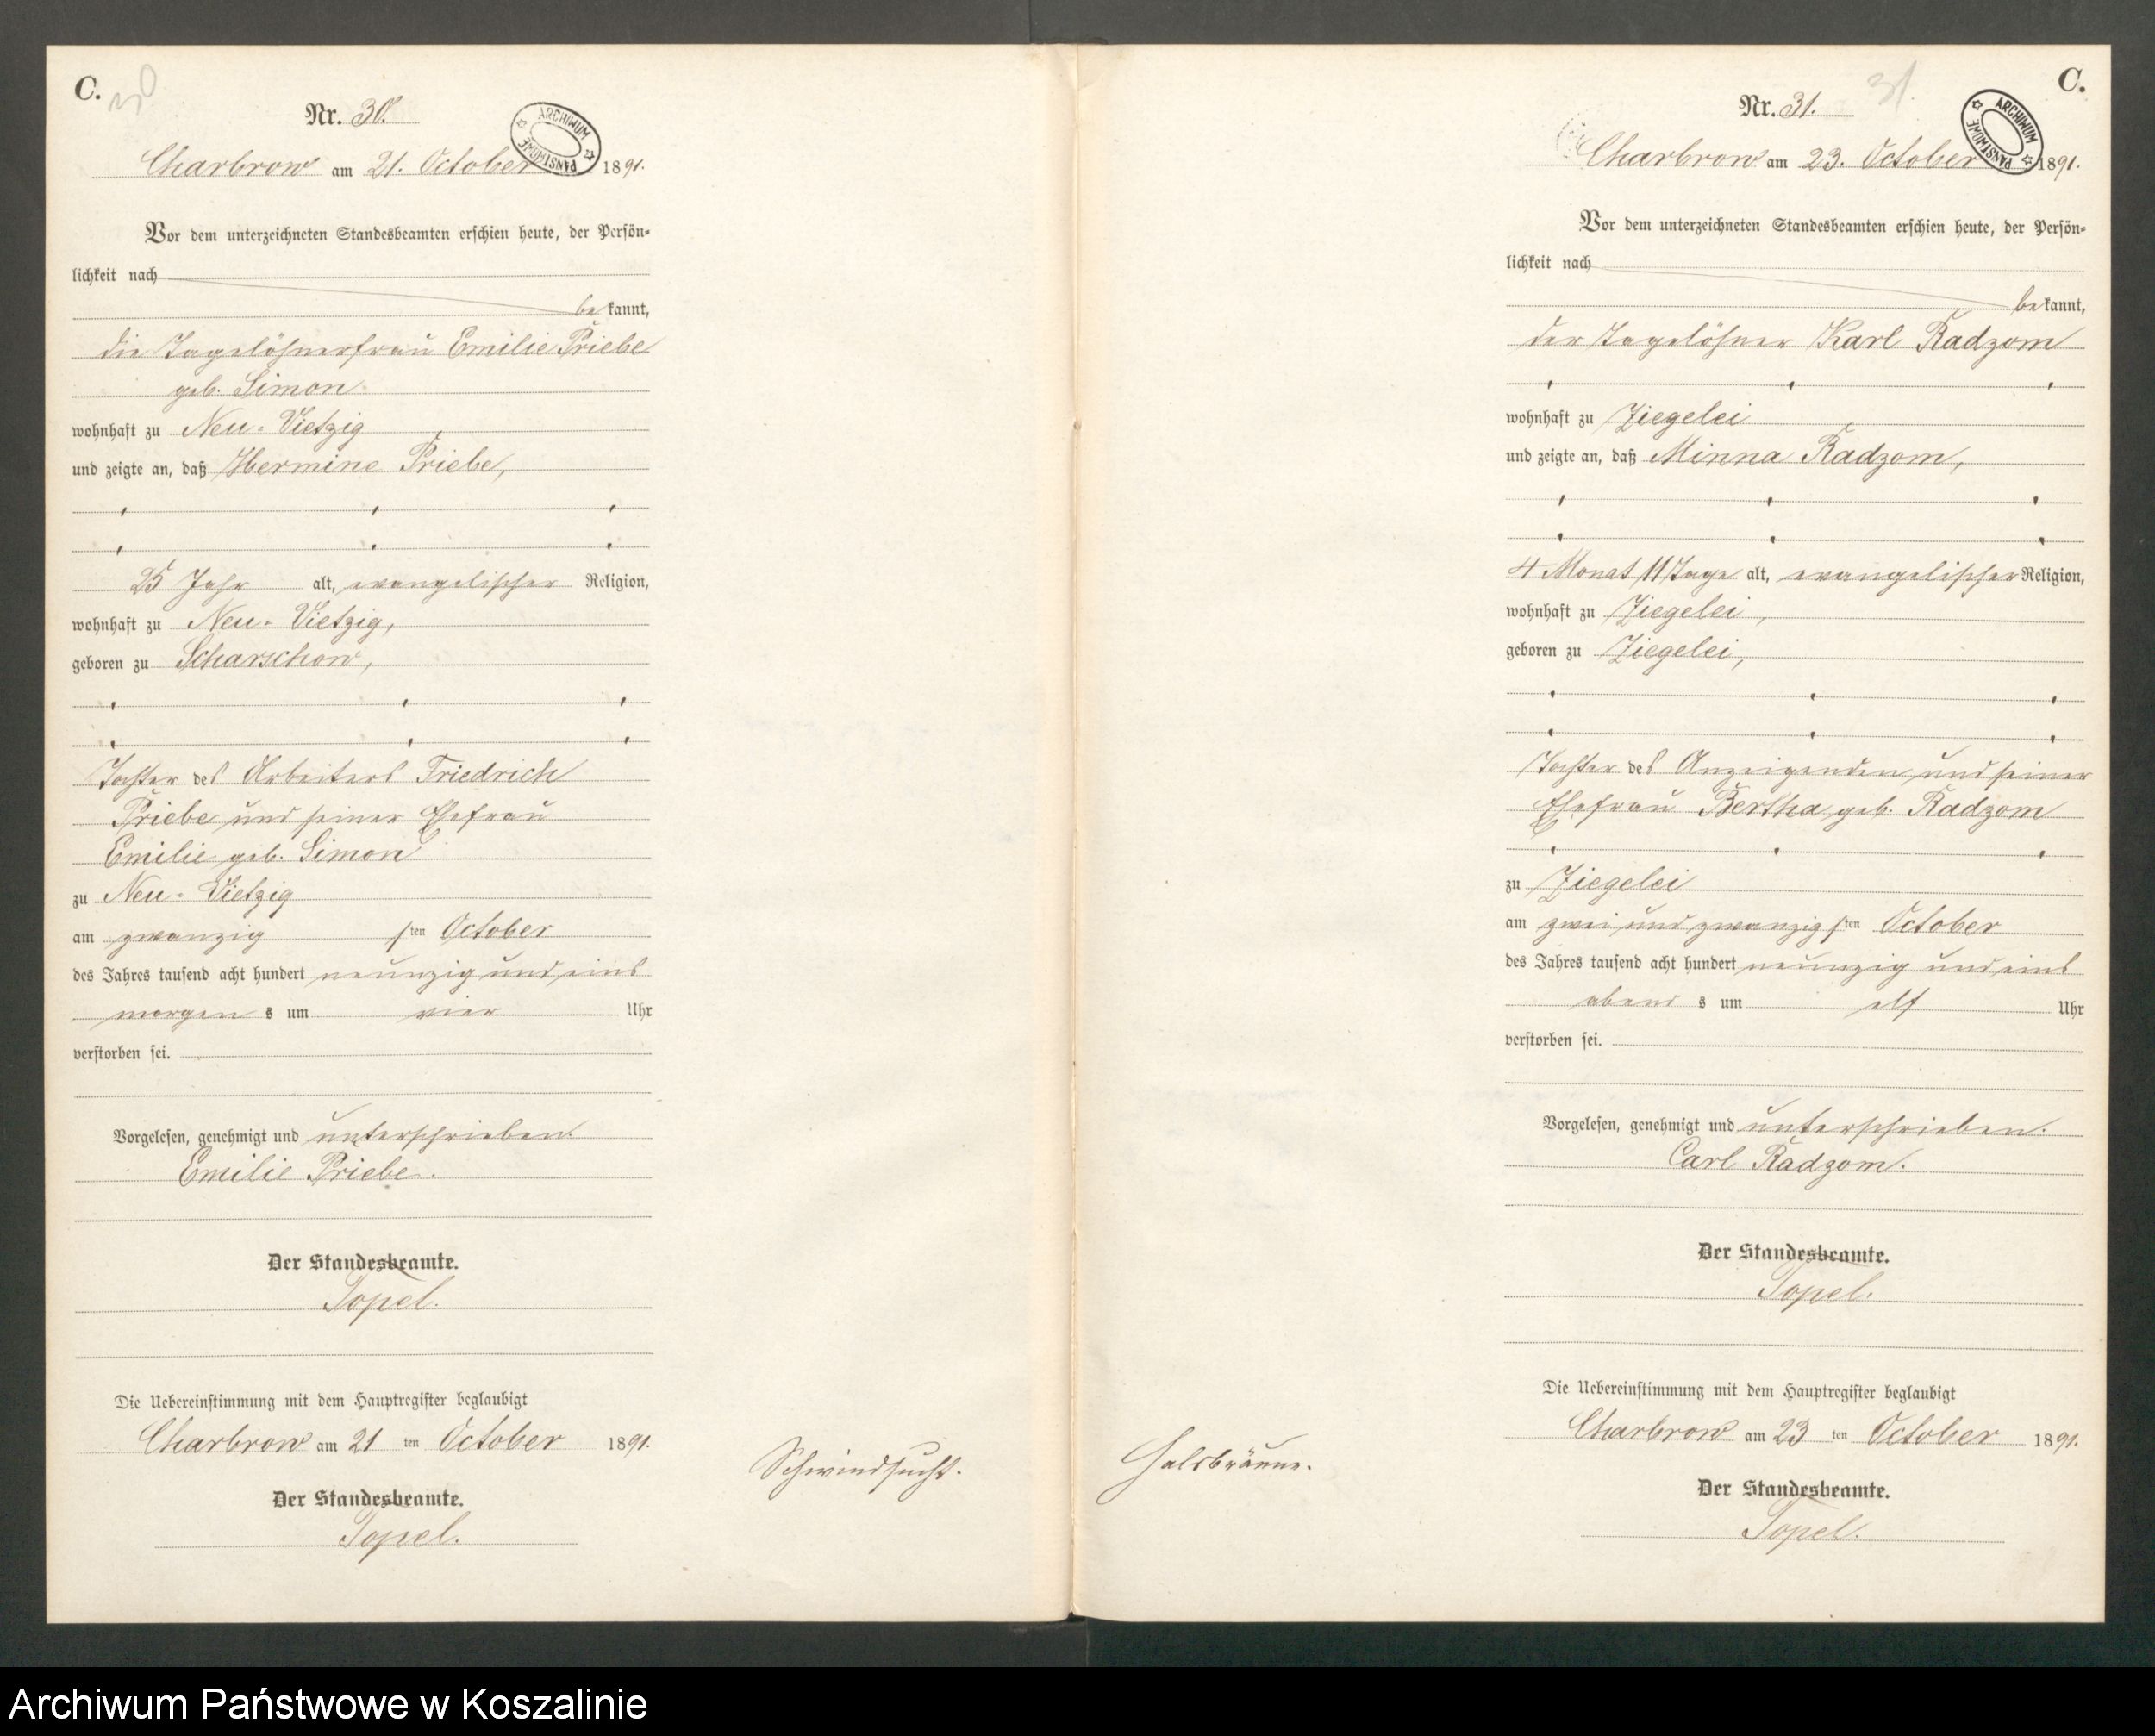 C.
30
Nr. 30.
ARCHIWUM PAŃSTWOWE
Charbrow am 21. October 1891.
Vor dem unterzeichneten Standesbeamten erschien heute, der Persön-
lichkeit nach
bekannt,
die Tagelöhnerfrau Emilie Priebe
geb. Simon
wohnhaft zu Neu-Vietzig
und zeigte an, daß Hermine Priebe,
25 Jahr alt, evangelischer Religion,
wohnhaft zu Neu-Vietzig,
geboren zu Scharschow,
Tochter des Arbeiters Friedrich
Priebe und seiner Ehefrau
Emilie geb. Simon
zu Neu-Vietzig
am zwanzigsten October
des Jahres tausend acht hundert neunzig und eins
morgens um vier Uhr
verstorben sei.
Vorgelesen, genehmigt und unterschrieben.
Emilie Priebe.
Der Standesbeamte.
Topel.
Die Uebereinstimmung mit dem Hauptregister beglaubigt
Charbrow am 21ten October 1891.
Der Standesbeamte.
Topel.
Schwindsucht.
C.
31
Nr. 31.
ARCHIWUM PAŃSTWOWE
Charbrow am 23. October 1891.
Vor dem unterzeichneten Standesbeamten erschien heute, der Persön-
lichkeit nach
bekannt,
der Tagelöhner Karl Radzom
wohnhaft zu Ziegelei
und zeigte an, daß Minna Radzom,
4 Monat 11 Tage alt, evangelischer Religion,
wohnhaft zu Ziegelei,
geboren zu Ziegelei,
Tochter des Anzeigenden und seiner
Ehefrau Bertha geb. Radzom
zu Ziegelei
am zwei und zwanzigsten October
des Jahres tausend acht hundert neunzig und eins
abends um elf Uhr
verstorben sei.
Vorgelesen, genehmigt und unterschrieben.
Carl Radzom.
Der Standesbeamte.
Topel.
Die Uebereinstimmung mit dem Hauptregister beglaubigt
Charbrow am 23ten October 1891.
Der Standesbeamte.
Topel.
Halsbräune.
Archiwum Państwowe w Koszalinie